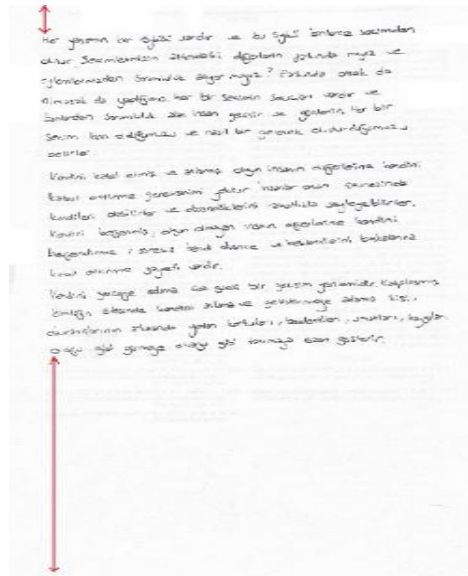 Her yaşamın bir öyküsü vardır ve bu öykü binlerce seçimden
oluşur. Seçimlerimizin altındaki diğerlerin farkında mıyız ve
eylemlerimizden sorumluluk alıyor muyuz? Farkında olsak da
olmasak da yaptığımız her bir seçimin sonuçları vardır ve
bunlardan sorumluluk alan insan geçmiş ve gösterir, her bir
seçim kim olduğumuzu ve nasıl bir gelecek oluşturduğumuzu
belirler.
Kendini kabul etmiş ve olgun insanın diğerlerine kendini
kabul ettirme gereksinimi yoktur. İnsanlar onun çevresinde
kendileri olabilirler ve düşündüklerini rahatlıkla söyleyebilirler.
Kendini beğenmiş, olgun olmayan insanın diğerlerine kendini
beğendirme, düşünce ve beklentilerini başkalarına
kabul ettirme gayreti vardır.
Kendini geliştirme adına çok güçlü bir yöntemdir.
kimliğin ötesinde kendini bilmeye ve geliştirmeye adamış kişi,
davranışlarının altında yatan korkuları, beklentileri, umutları, kaygıları
olduğu gibi görmeye olduğu gibi tanımaya özen gösterir.